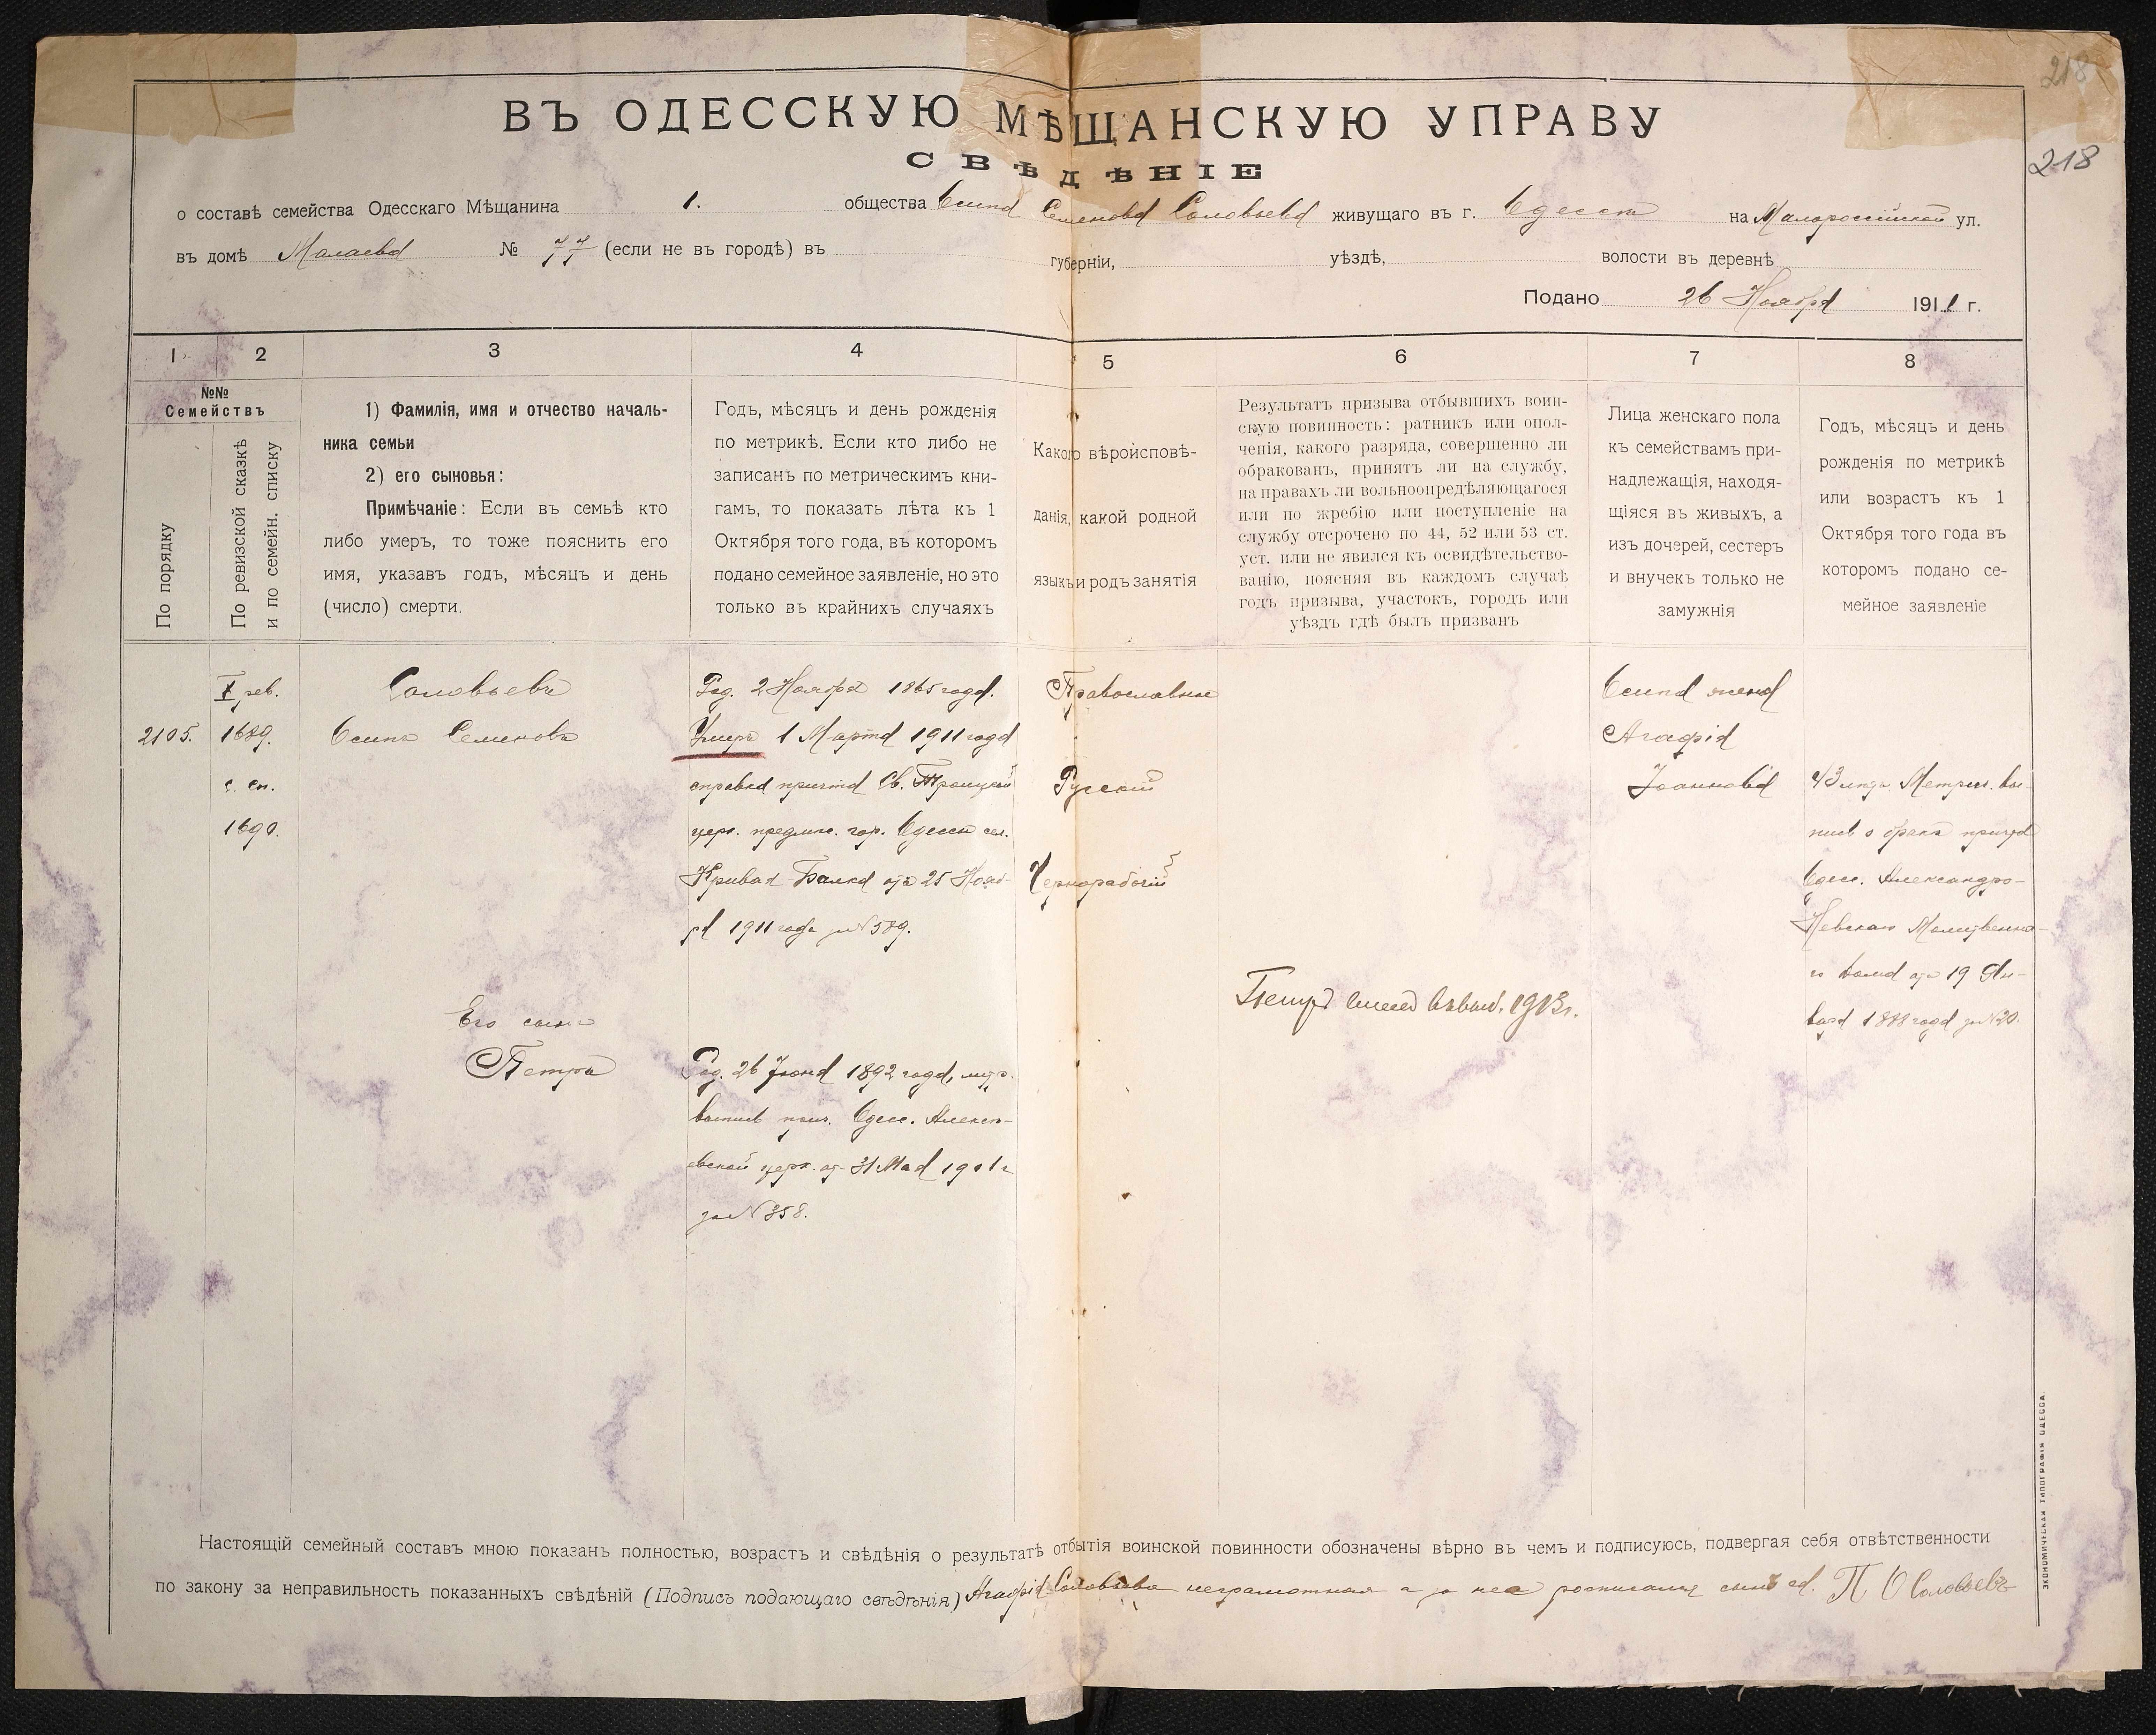 218
218
ВЪ ОДЕССКУЮ МѢЩАНСКУЮ УПРАВУ
СВѢДѢНІЕ
о составѣ семейства Одесскаго Мѣщанина 1. общества Осипа Семенова Соловьева живущаго въ г. Одессѣ на Малороссійской ул.
въ домѣ Малаева № 77 (если не въ городѣ) въ губерніи, уѣздѣ, волости въ деревнѣ
Подано 26 Ноября 1911 г.
1 2 3 4 5 6 7 8
№№
Семействъ
По порядку
По ревизской сказкѣ
и по семейн. списку
1) Фамилія, имя и отчество началь-
ника семьи
2) его сыновья:
Примѣчаніе: Если въ семьѣ кто
либо умеръ, то тоже пояснить его
имя, указавъ годъ, мѣсяцъ и день
(число) смерти.
Годъ, мѣсяцъ и день рожденія
по метрикѣ. Если кто либо не
записанъ по метрическимъ кни-
гамъ, то показать лѣта къ 1
Октября того года, въ которомъ
подано семейное заявленіе, но это
только въ крайнихъ случаяхъ
Какого вѣроисповѣ-
данія, какой родной
языкъ и родъ занятія
Результатъ призыва отбывшихъ воин-
скую повинность: ратникъ или опол-
ченія, какого разряда, совершенно ли
обракованъ, принятъ ли на службу,
на правахъ ли вольноопредѣляющагося
или по жребію или поступленіе на
службу отсрочено по 44, 52 или 53 ст.
уст. или не явился къ освидѣтельство-
ванію, поясняя въ каждомъ случаѣ
годъ призыва, участокъ, городъ или
уѣздъ гдѣ былъ призванъ
Лица женскаго пола
къ семействамъ при-
надлежащія, находя-
щіяся въ живыхъ, а
изъ дочерей, сестеръ
и внучекъ только не
замужнія
Годъ, мѣсяцъ и день
рожденія по метрикѣ
или возрастъ къ 1
Октября того года въ
которомъ подано се-
мейное заявленіе
2105.
X рев.
1689.
с. сп.
1690.
Соловьевъ
Осипъ Семеновъ
Его сынъ
Петръ
Род. 2 Ноября 1865 года.
Умеръ 1 Марта 1911 года
справка причта Св. Троицкой
церк. предмѣс. гор. Одессы сел.
Кривая Балка отъ 25 Нояб-
ря 1911 года за №589.
Род. 26 Іюня 1892 года, метр.
выпись прич. Одес. Алексѣ-
евской церк. отъ 31 Мая 1901 г
за №358.
Православное
Русскій
Чернорабочій
Петръ внесенъ въ выб. 1913 г.
Осипа жена
Агафія
Іоаннова
43 лѣтъ. Метрич. вы-
пись о бракѣ причта
Одес. Александро-
Невскаго Молитвенна-
го дома отъ 19 Ян-
варя 1888 года за №20.
Настоящій семейный составъ мною показанъ полностью, возрастъ и свѣдѣнія о результатѣ отбытія воинской повинности обозначены вѣрно въ чемъ и подписуюсь, подвергая себя отвѣтственности
по закону за неправильность показанныхъ свѣдѣній (Подпись подающаго свѣдѣнія) Агафія Соловьева неграмотная а за нее росписался сынъ ея. П О Соловьевъ
ЭКОНОМИЧЕСКАЯ ТИПОГРАФІЯ ОДЕССА